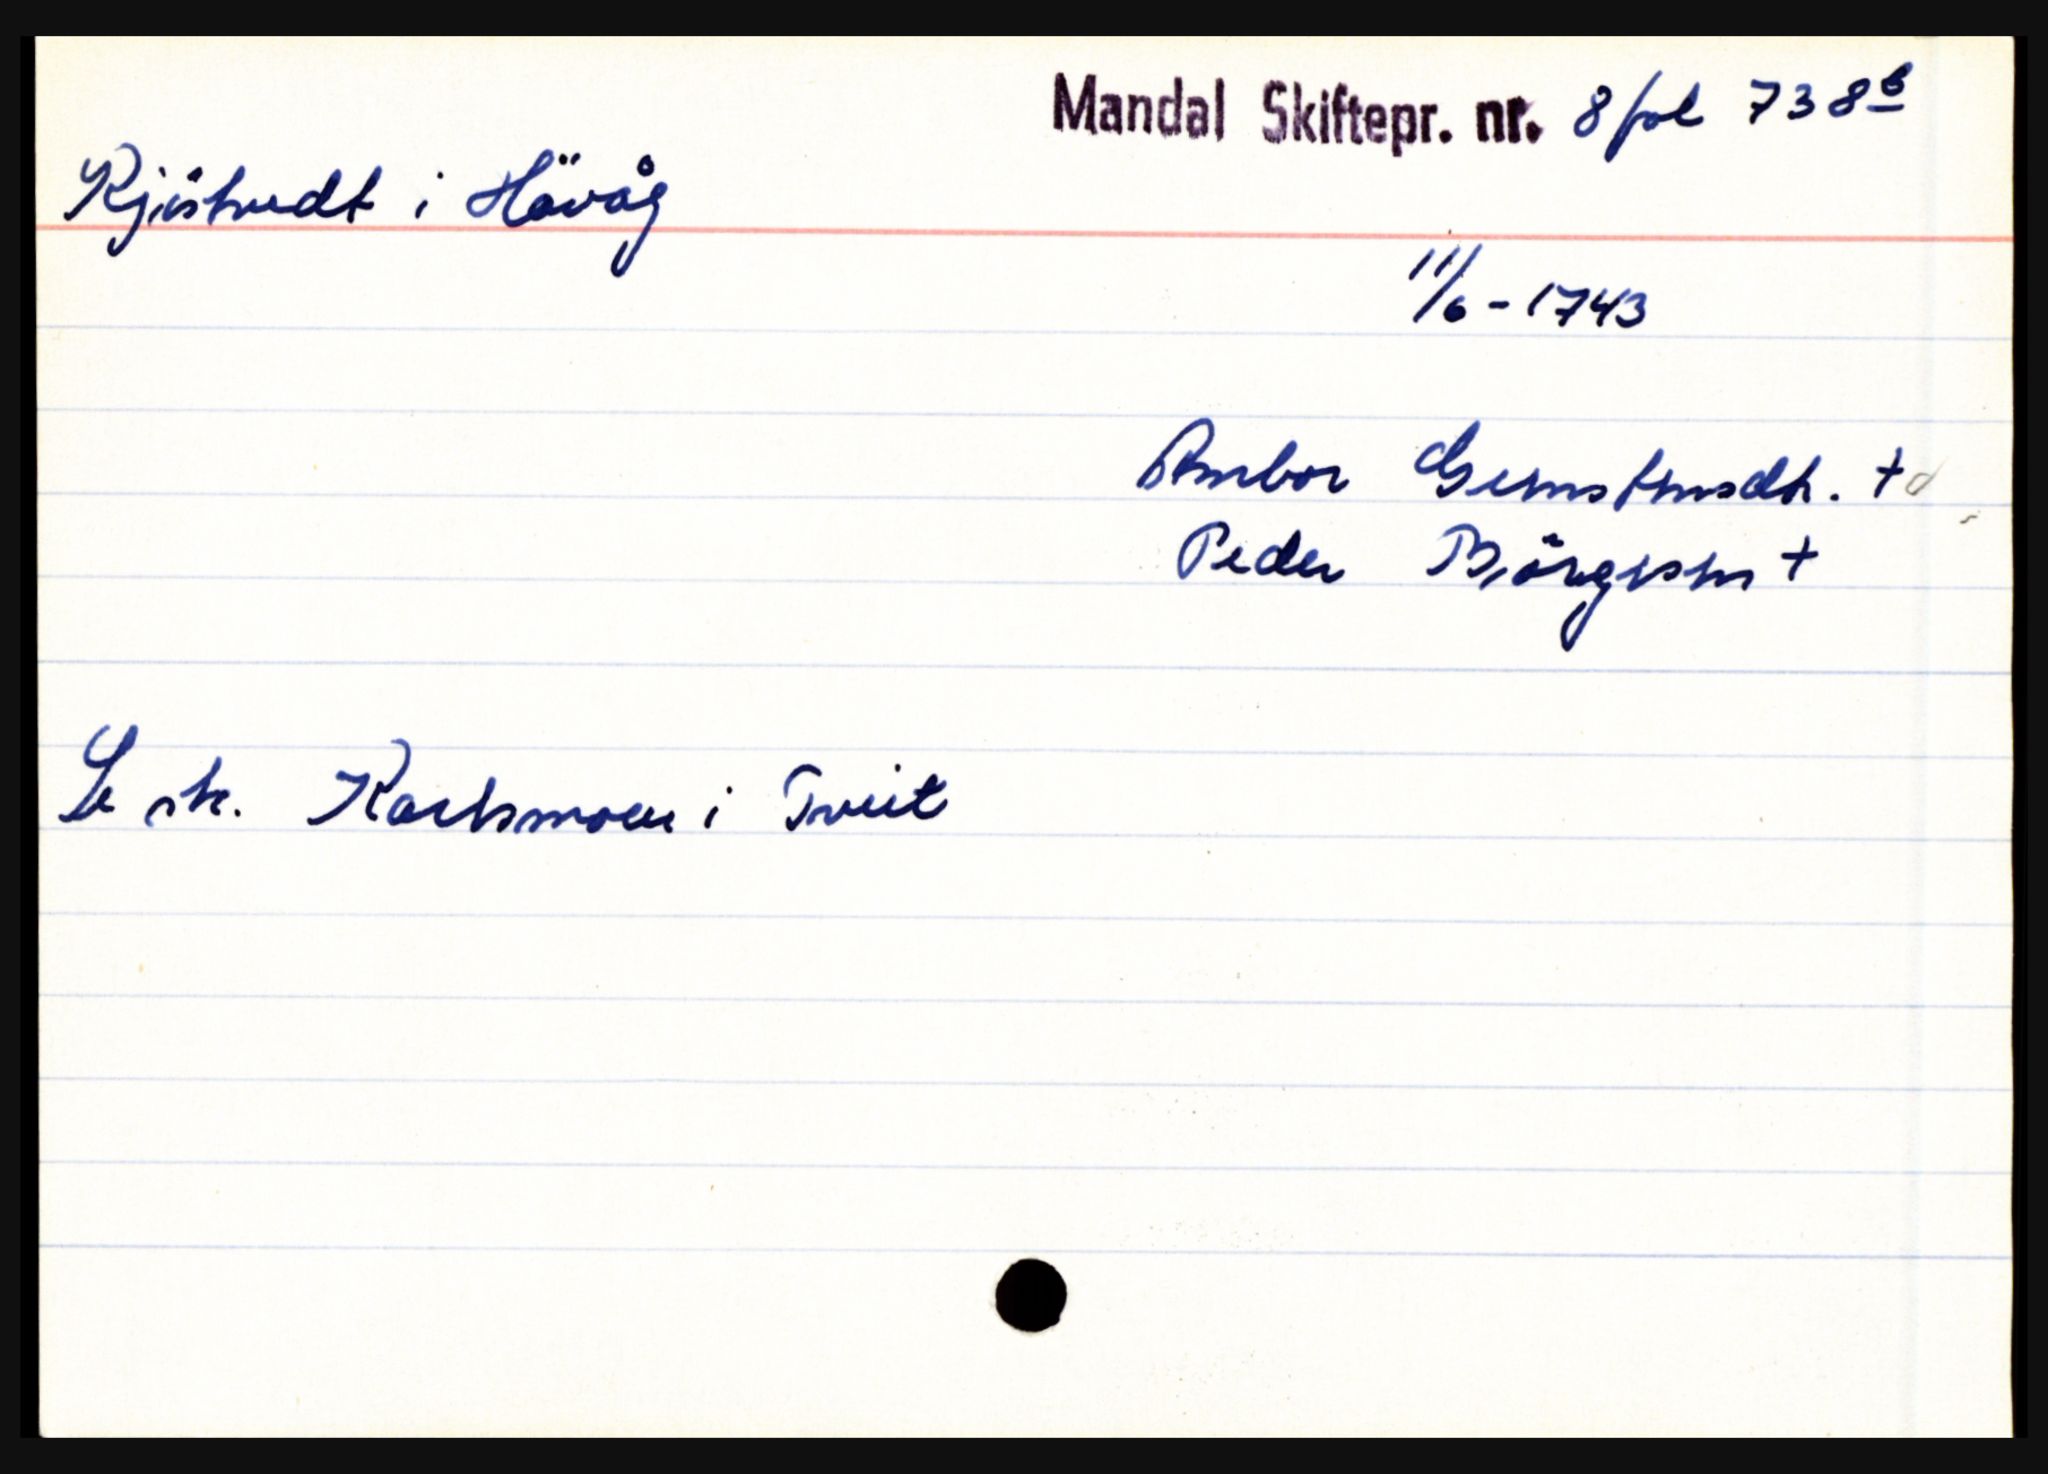 Mandal Skiftepr. nr. 8 fol 738b
Kjöstvedt i Hövåg
11/6 - 1743
Anbor Gunstensdtr. +
Peder Börgesen +
Se sk. Karlsmoen i Tveit